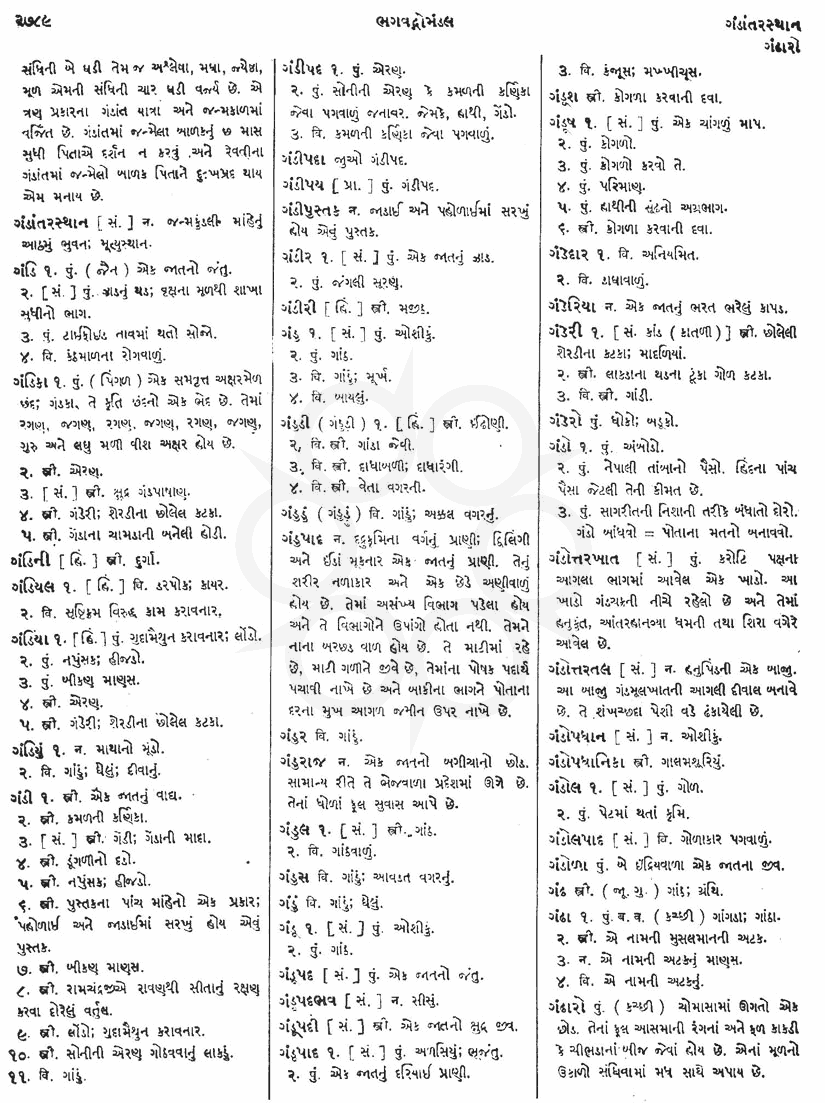 ૨૭૮૯
ભગવદ્ગોમંડલ
ગંડાંતરસ્થાન
ગંઢારો
સંધિની બે ઘડી તેમ જ અશ્લેષા, મઘા, જ્યેષ્ઠા,
મૂળ એમની સંધિની ચાર ઘડી વર્જ્ય છે. એ
ત્રણ પ્રકારના ગંડાંત યાત્રા અને જન્મકાળમાં
વર્જિત છે. ગંડાંતમાં જન્મેલા બાળકનું છ માસ
સુધી પિતાએ દર્શન ન કરવું અને રેવતીના
ગંડાંતમાં જન્મેલો બાળક પિતાને દુઃખપ્રદ થાય
એમ મનાય છે.
ગંડાંતરસ્થાન [ સં. ] ન. જન્મકુંડલી માંહેનું
આઠમું ભુવન; મૃત્યુસ્થાન.
ગંડિ ૧. પું. ( જૈન ) એક જાતનો જંતુ.
૨. [ સં. ] પું. ઝાડનું થડ; વૃક્ષના મૂળથી શાખા
સુધીનો ભાગ.
૩. પું. ટાઈફોઇડ તાવમાં થતો સોજો.
૪. વિ. કંઠમાળના રોગવાળું.
ગંડિકા ૧. પું. ( પિંગળ ) એક સમવૃત્ત અક્ષરમેળ
છંદ; ગંડકા. તે કૃતિ છંદનો એક ભેદ છે. તેમાં
રગણ, જગણ, રગણ, જગણ, રગણ, જગણ,
ગુરુ અને લઘુ મળી વીશ અક્ષર હોય છે.
૨. સ્ત્રી. એરણ.
૩. [ સં. ] સ્ત્રી. ક્ષુદ્ર ગંડપાષાણ.
૪. સ્ત્રી. ગંડેરી; શેરડીના છોલેલ કટકા.
૫. સ્ત્રી. ગેંડાના ચામડાની બનેલી હોડી.
ગંડિની [ હિં. ] સ્ત્રી. દુર્ગા.
ગંડિયલ ૧. [ હિં. ] વિ. ડરપોક; કાયર.
૨. વિ. સૃષ્ટિક્રમ વિરુદ્ધ કામ કરાવનાર.
ગંડિયા ૧. [ હિં. ] પું. ગુદામૈથુન કરાવનાર; લોંડો.
૨. પું. નપુંસક; હીજડો.
૩. પું. બીકણ માણસ.
૪. સ્ત્રી. એરણ.
૫. સ્ત્રી. ગંડેરી; શેરડીના છોલેલ કટકા.
ગંડિયું ૧. ન. માથાનો મૂંડો.
૨. વિ. ગાંડું; ઘેલું; દીવાનું.
ગંડી ૧. સ્ત્રી. એક જાતનું વાદ્ય.
૨. સ્ત્રી. કમળની કર્ણિકા.
૩. [ સં. ] સ્ત્રી. ગેંડી; ગેંડાની માદા.
૪. સ્ત્રી. ડુંગળીનો દડો.
૫. સ્ત્રી. નપુંસક; હીજડો.
૬. સ્ત્રી. પુસ્તકના પાંચ માંહેનો એક પ્રકાર;
પહોળાઈ અને જાડાઈમાં સરખું હોય એવું
પુસ્તક.
૭. સ્ત્રી. બીકણ માણસ.
૮. સ્ત્રી. રામચંદ્રજીએ રાવણથી સીતાનું રક્ષણ
કરવા દોરેલું વર્તુલ.
૯. સ્ત્રી. લોંડો; ગુદામૈથુન કરાવનાર.
૧૦. સ્ત્રી. સોનીની એરણ ગોઠવવાનું લાકડું.
૧૧. વિ. ગાંડું.
ગંડીપદ ૧. પું. એરણ.
૨. પું. સોનીની એરણ કે કમળની કર્ણિકા
જેવા પગવાળું જનાવર. જેમકે, હાથી, ગેંડો.
૩. વિ. કમળની કર્ણિકા જેવા પગવાળું.
ગંડીપદા જુઓ ગંડીપદ.
ગંડીપય [ પ્રા. ] પું. ગંડીપદ.
ગંડીપુસ્તક ન. જાડાઈ અને પહોળાઈમાં સરખું
હોય એવું પુસ્તક.
ગંડીર ૧. [ સં. ] પું. એક જાતનું ઝાડ.
૨. પું. જંગલી સૂરણ.
ગંડીરી [ હિં. ] સ્ત્રી. મજીઠ.
ગંડુ ૧. [ સં. ] પું. ઓશીકું.
૨. પું. ગાંઠ.
૩. વિ. ગાંડું; મૂર્ખ.
૪. વિ. બાયલું.
ગંડુડી ( ગંડૂડી ) ૧. [ હિં. ] સ્ત્રી. ઈઢોણી.
૨. વિ. સ્ત્રી. ગાંડા જેવી.
૩. વિ. સ્ત્રી. દાધાબળી; દાધારંગી.
૪. વિ. સ્ત્રી. વેતા વગરની.
ગંડુડું ( ગંડૂડું ) વિ. ગાંડું; અક્કલ વગરનું.
ગંડુપાદ ન. દદ્રુકૃમિના વર્ગનું પ્રાણી; દ્વિલિંગી
અને ઈંડાં મૂકનાર એક જાતનું પ્રાણી. તેનું
શરીર નળાકાર અને એક છેડે અણીવાળું
હોય છે. તેમાં અસંખ્ય વિભાગ પડેલા હોય
અને તે વિભાગોને ઉપાંગો હોતા નથી. તેમને
નાના બરછડ વાળ હોય છે. તે માટીમાં રહે
છે, માટી ગળીને જીવે છે, તેમાંના પોષક પદાર્થ
પચાવી નાખે છે અને બાકીના ભાગને પોતાના
દરના મુખ આગળ જમીન ઉપર નાખે છે.
ગંડુર વિ. ગાંડું.
ગંડુરાજ ન. એક જાતનો બગીચાનો છોડ.
સામાન્ય રીતે તે ભેજવાળા પ્રદેશમાં ઊગે છે.
તેનાં ધોળાં ફૂલ સુવાસ આપે છે.
ગંડુલ ૧. [ સં. ] સ્ત્રી. ગાંઠ.
૨. વિ. ગાંઠવાળું.
ગંડુસ વિ. ગાંડું; આવડત વગરનું.
ગંડું વિ. ગાંડું; ઘેલું.
ગંડૂ ૧. [ સં. ] પું. ઓશીકું.
૨. પું. ગાંઠ.
ગંડૂપદ [ સં. ] પું. એક જાતનો જંતુ.
ગંડૂપદભવ [ સં. ] ન. સીસું.
ગંડૂપદી [ સં. ] સ્ત્રી. એક જાતનો ક્ષુદ્ર જીવ.
ગંડૂપાદ ૧. [ સં. ] પું. અળસિયું; ભૂજંતુ.
૨. પું. એક જાતનું દરિયાઈ પ્રાણી.
૩. વિ. કંજૂસ; મખ્ખીચૂસ.
ગંડૂશ સ્ત્રી. કોગળા કરવાની દવા.
ગંડૂષ ૧. [ સં. ] પું. એક ચાંગળું માપ.
૨. પું. કોગળો.
૩. પું. કોગળો કરવો તે.
૪. પું. પરિમાણ.
૫. પું. હાથીની સૂંઢનો અગ્રભાગ.
૬. સ્ત્રી. કોગળા કરવાની દવા.
ગંડેદાર ૧. વિ. અનિયમિત.
૨. વિ. ડાઘાવાળું.
ગંડેરિયા ન. એક જાતનું ભરત ભરેલું કાપડ.
ગંડેરી ૧. [ સં. કાંડ ( કાતળી ) ] સ્ત્રી. છોલેલી
શેરડીના કટકા; માદળિયાં.
૨. સ્ત્રી. લાકડાના થડના ટૂંકા ગોળ કટકા.
૩. વિ. સ્ત્રી. ગાંડી.
ગંડેરો પું. ધોકો; બડૂકો.
ગંડો ૧. પું. અંબોડો.
૨. પું. નેપાલી તાંબાનો પૈસો. હિંદના પાંચ
પૈસા જેટલી તેની કીમત છે.
૩. પું. સાગરીતની નિશાની તરીકે બંધાતો દોરો.
ગંડો બાંધવો = પોતાના મતનો બનાવવો.
ગંડોત્તરખાત [ સં. ] પું. કરોટિ પક્ષના
આગલા ભાગમાં આવેલ એક ખાડો. આ
ખાડો ગંડચક્રની નીચે રહેલો છે અને તેમાં
હનુકુંત, આંતરહાનવ્યા ધમની તથા શિરા વગેરે
આવેલ છે.
ગંડોત્તરતલ [ સં. ] ન. હનુપિંડની એક બાજુ.
આ બાજુ ગંડમૂલખાતની આગલી દીવાલ બનાવે
છે. તે શંખચ્છદા પેશી વડે ઢંકાયેલી છે.
ગંડોપધાન [ સં. ] ન. ઓશીકું.
ગંડોપધાનિકા સ્ત્રી. ગાલમશૂરિયું.
ગંડોલ ૧. [ સં. ] પું. ગોળ.
૨. પું. પેટમાં થતાં કૃમિ.
ગંડોલપાદ [ સં. ] વિ. ગોળાકાર પગવાળું.
ગંડોળા પું. બે ઇંદ્રિયવાળા એક જાતના જીવ.
ગંઢ સ્ત્રી. ( જૂ. ગુ. ) ગાંઠ; ગ્રંથિ.
ગંઢા ૧. પું. બ. વ. ( કચ્છી ) ગાંગડા; ગાંઠા.
૨. સ્ત્રી. એ નામની મુસલમાનની અટક.
૩. ન. એ નામની અટકનું માણસ.
૪. વિ. એ નામની અટકનું.
ગંઢારો પું. ( કચ્છી ) ચોમાસામાં ઊગતો એક
છોડ. તેનાં ફૂલ આસમાની રંગનાં અને ફળ કાકડી
કે ચીભડાનાં બીજ જેવાં હોય છે. એનાં મૂળનો
ઉકાળો સંધિવામાં મધ સાથે અપાય છે.